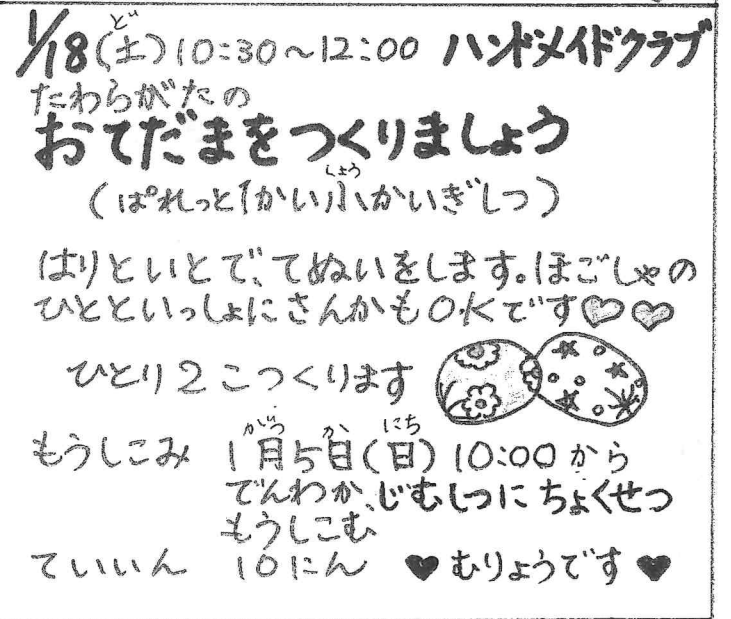 1/18(土)10:30～12:00 ハンドメイドクラブ
たわらがたの
おてだまをつくりましょう
(ぱれっと1かい小かいぎしつ)
はりといとで、てぬいをします。ほごしゃの
ひとといっしょにさんかもOKです♡♡
ひとり2こつくります
もうしこみ 1月5日(日)10:00から
でんわか、じむしつにちょくせつ
もうしこむ
ていいん 10にん ♥むりょうです♥